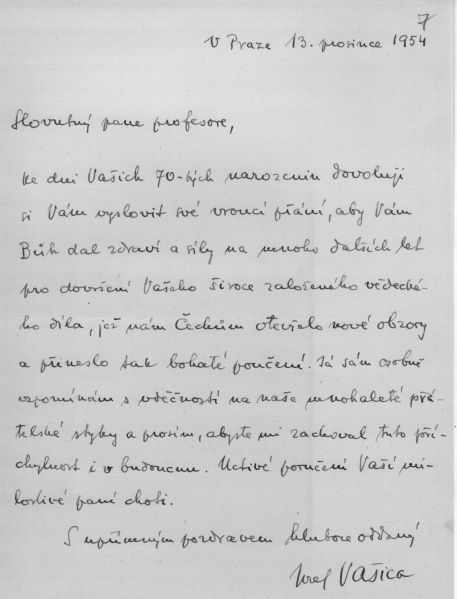 7
V Praze 13. prosince 1954
Slovutný pane profesore,
ke dni Vašich 70-tých narozenin dovoluji
si Vám vyslovit své vroucí přání, aby Vám
Bůh dal zdraví a síly na mnoho dalších let
pro dovršení Vašeho široce založeného vědecké-
ho díla, jež nám Čechům otevřelo nové obzory
a přineslo tak bohaté poučení. Já sám osobně
vzpomínám s vděčností na naše mnohaleté přá-
telské styky a prosím, abyste mi zachoval tuto pří-
chylnost i v budoucnu. Uctivé poručení Vaší mi-
lostivé paní choti.
S upřímným pozdravem hluboce oddaný
Josef Vašica